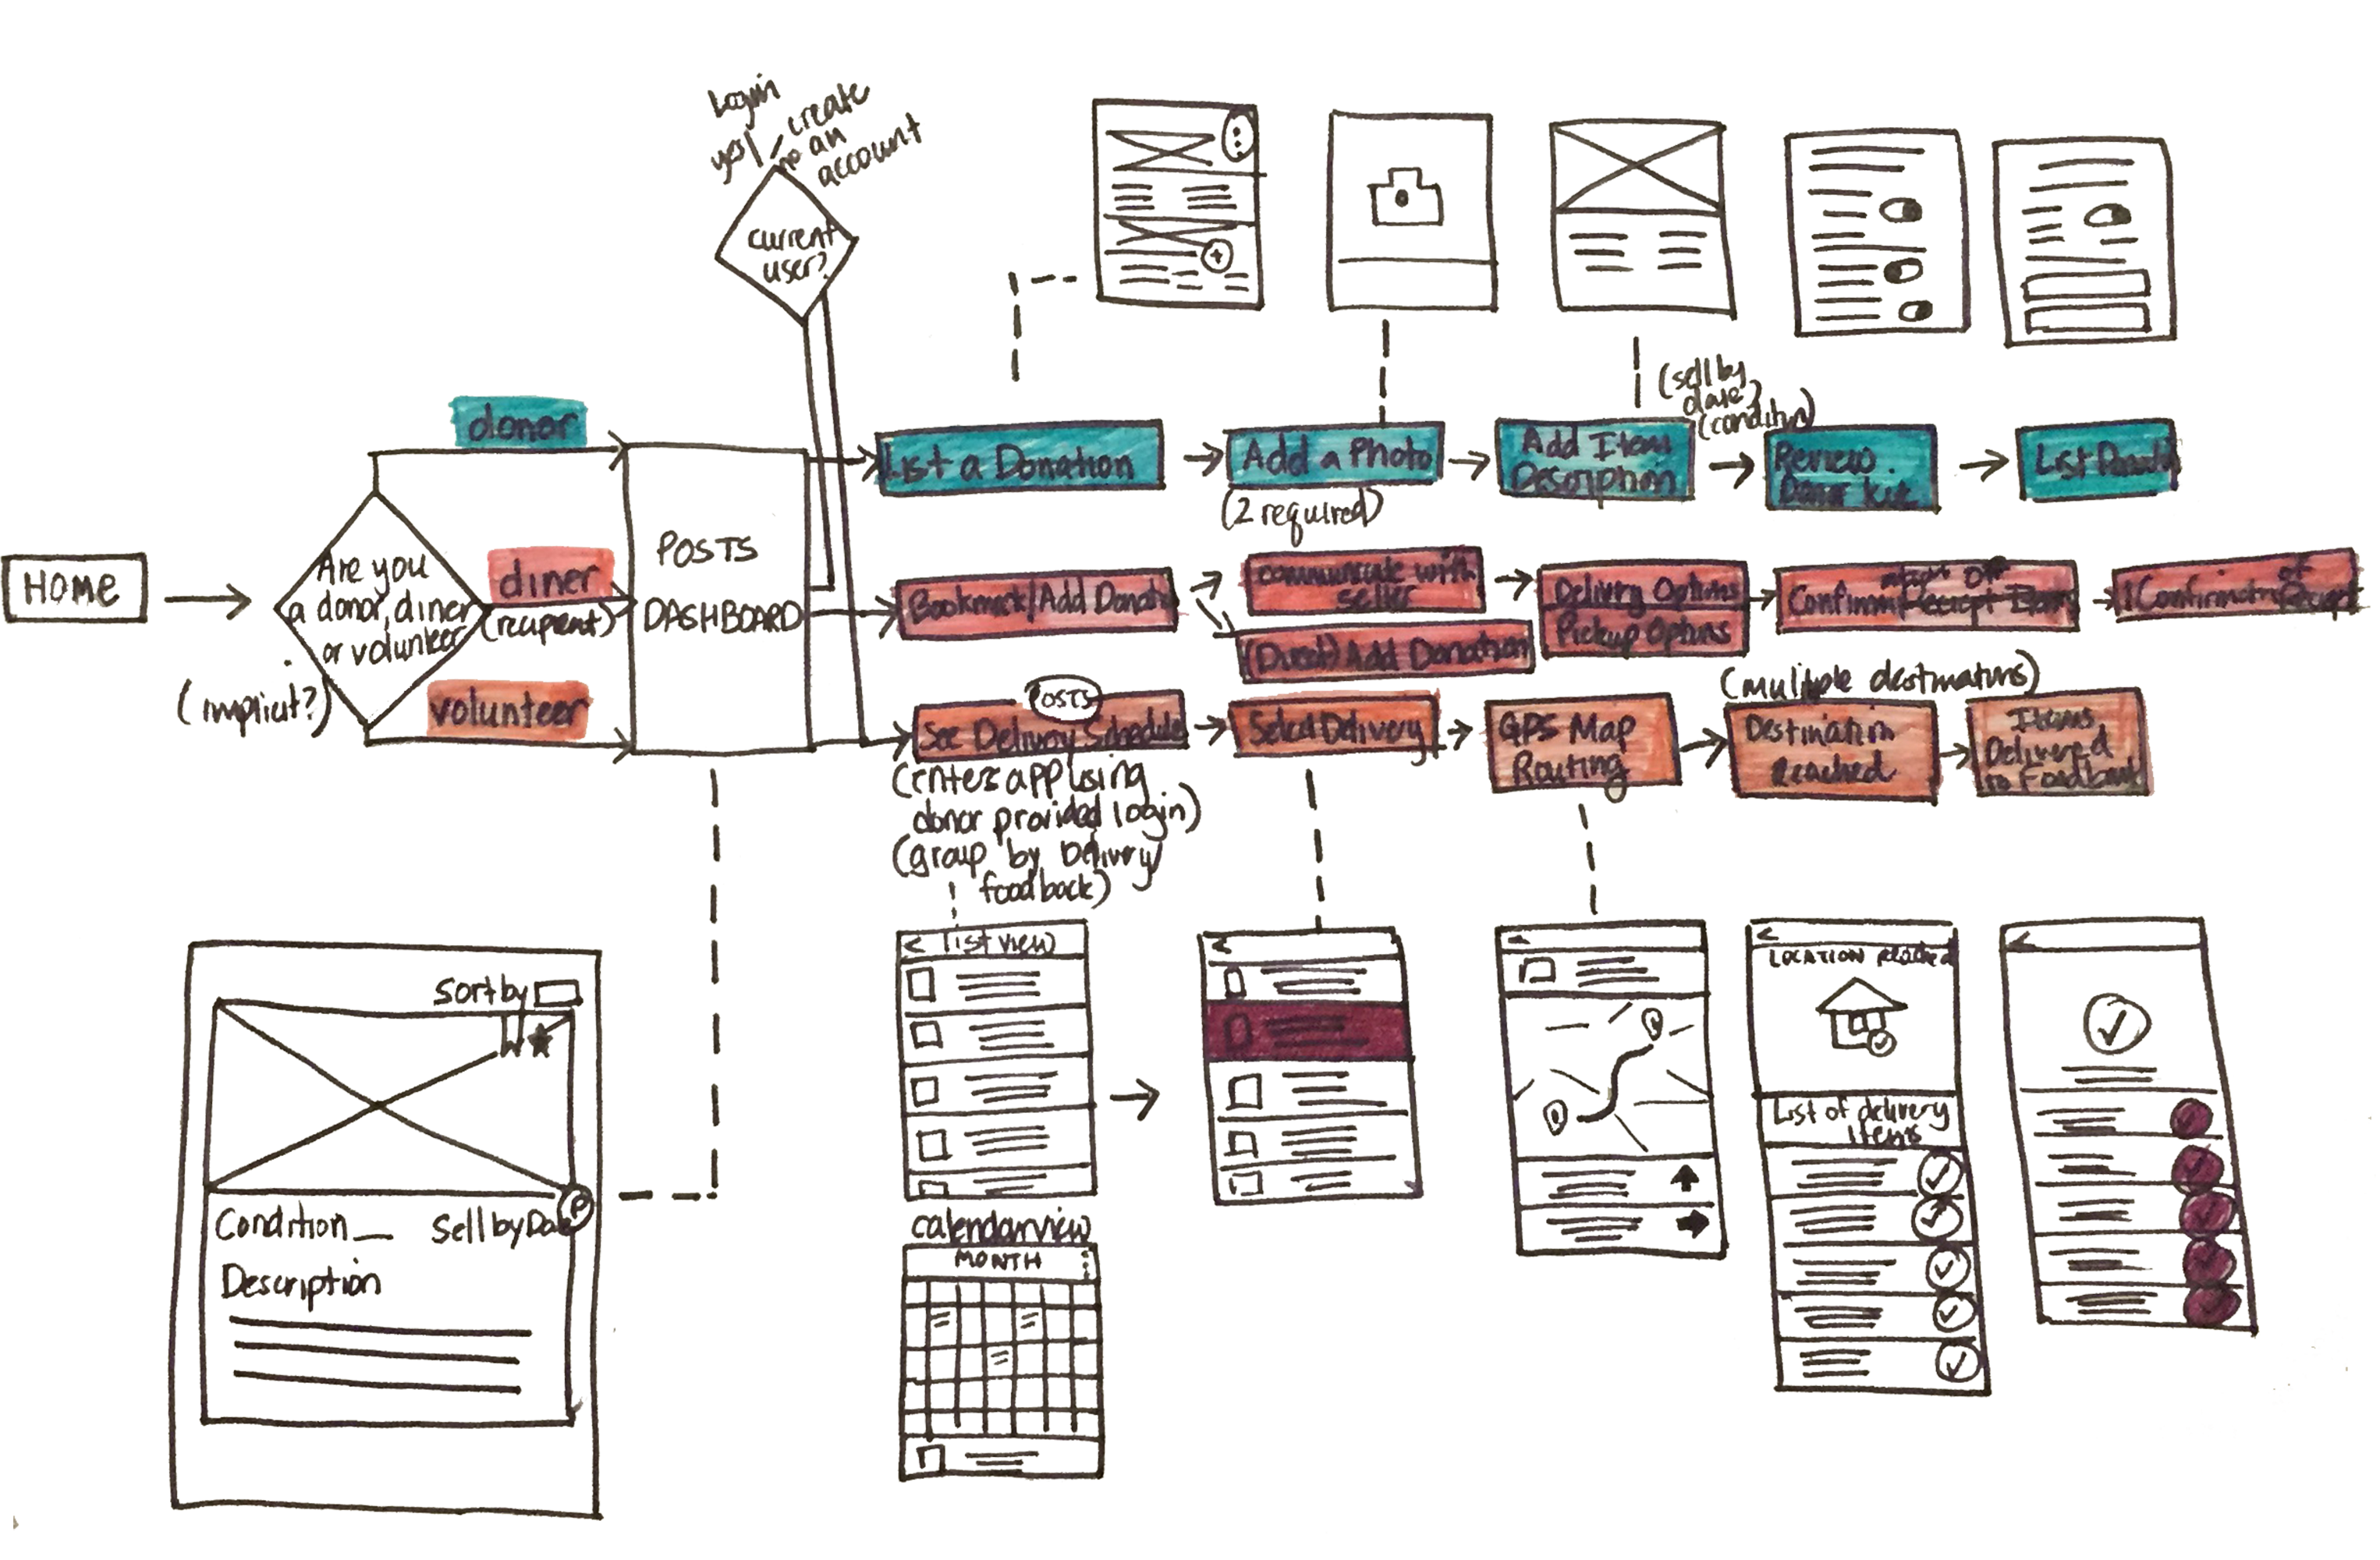 Login
yes
no
create
an
account
current
user?
HOME
Are you
a donor, diner
or volunteer
(implicit?)
donor
diner
(recipient)
volunteer
POSTS
DASHBOARD
List a Donation
Add a Photo
(2 required)
Add Item
Description
(sell by
date)
(condition)
Review
Donor Kit
List
Bookmark/Add
communicate with
seller
(Direct) Add Donation
Delivery Options
Pickup Options
Confirm
of
POSTS
See Delivery Schedule
(enters app using
donor provided login)
(group by Delivery
foodback)
Select Delivery
GPS Map
Routing
(multiple destinations)
Destination
Reached
Items
Delivered
to Foodbank
Sort by
Condition
Sell by Date
P
Description
< list view
calendar view
MONTH
<
<
LOCATION reached
List of delivery
Items